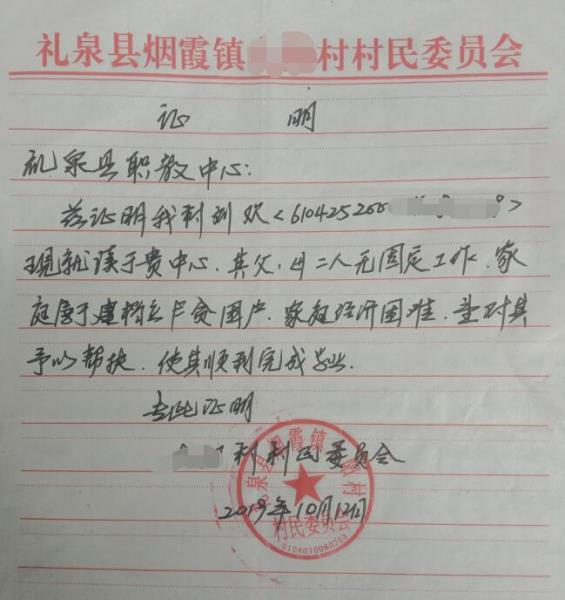 礼泉县烟霞镇 村村民委员会
证 明
礼泉县职教中心:
兹证明我村刘欢<610425200 >
现就读于贵中心.其父,母二人无固定工作.家
庭属于建档立卡贫困户.家庭经济困难.望对其
予以帮扶.使其顺利完成学业.
专此证明
村村民委员会
2019年10月12日
泉县烟霞镇 村
村民委员会